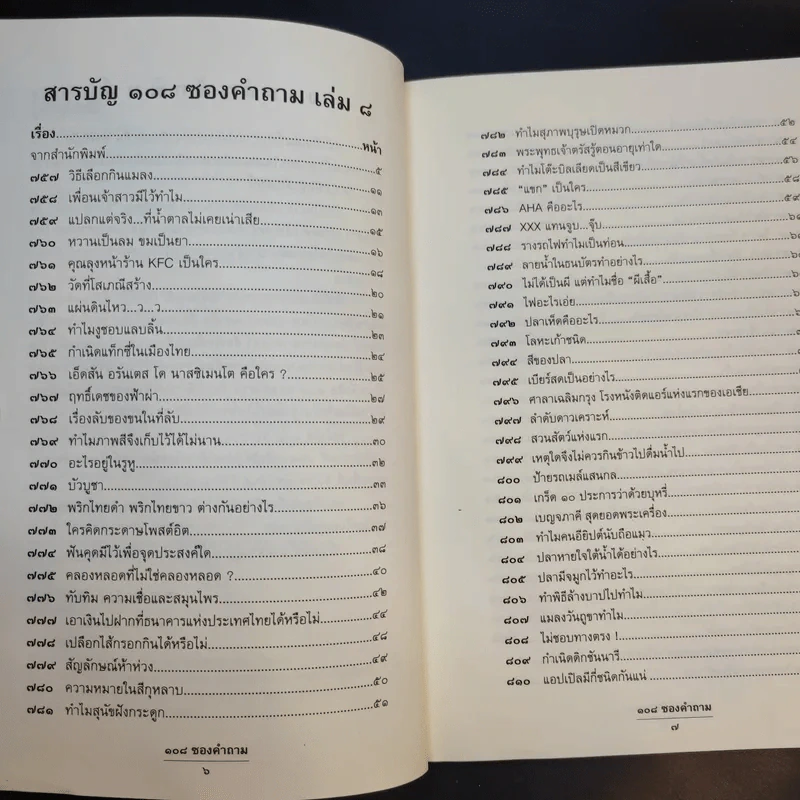 สารบัญ ๑๐๘ ซองคำถาม เล่ม ๘
เรื่อง..................หน้า
จากสำนักพิมพ์..................๕
๗๕๗ วิธีเลือกกินแมลง..................๑๑
๗๕๘ เพื่อนเจ้าสาวมีไว้ทำไม..................๑๓
๗๕๙ แปลกแต่จริง...ที่น้ำตาลไม่เคยเน่าเสีย..................๑๕
๗๖๐ หวานเป็นลม ขมเป็นยา..................๑๖
๗๖๑ คุณลุงหน้าร้าน KFC เป็นใคร..................๑๘
๗๖๒ วัดที่โสเภณีสร้าง..................๒๐
๗๖๓ แผ่นดินไหว...ว...ว..................๒๑
๗๖๔ ทำไมงูชอบแลบลิ้น..................๒๓
๗๖๕ กำเนิดแท็กซี่ในเมืองไทย..................๒๔
๗๖๖ เอ็ดสัน อรันเตส โด นาสซิเมนโต คือใคร ?..................๒๕
๗๖๗ ฤทธิ์เดชของฟ้าผ่า..................๒๗
๗๖๘ เรื่องลับของขนในที่ลับ..................๒๙
๗๖๙ ทำไมภาพสีจึงเก็บไว้ได้ไม่นาน..................๓๐
๗๗๐ อะไรอยู่ในรูหู..................๓๒
๗๗๑ บัวบูชา..................๓๓
๗๗๒ พริกไทยดำ พริกไทยขาว ต่างกันอย่างไร..................๓๖
๗๗๓ ใครคิดกระดาษโพสต์อิต..................๓๗
๗๗๔ ฟันคุดมีไว้เพื่อจุดประสงค์ใด..................๓๘
๗๗๕ คลองหลอดที่ไม่ใช่คลองหลอด ?..................๔๐
๗๗๖ ทับทิม ความเชื่อและสมุนไพร..................๔๒
๗๗๗ เอาเงินไปฝากที่ธนาคารแห่งประเทศไทยได้หรือไม่..................๔๔
๗๗๘ เปลือกไส้กรอกกินได้หรือไม่..................๔๘
๗๗๙ สัญลักษณ์ห้าห่วง..................๔๙
๗๘๐ ความหมายในสีกุหลาบ..................๕๐
๗๘๑ ทำไมสุนัขฝังกระดูก..................๕๑
๑๐๘ ซองคำถาม
๖
๗๘๒ ทำไมสุภาพบุรุษเปิดหมวก..................๕๒
๗๘๓ พระพุทธเจ้าตรัสรู้ตอนอายุเท่าใด..................๕๔
๗๘๔ ทำไมโต๊ะบิลเลียดเป็นสีเขียว..................๕๖
๗๘๕ "แขก" เป็นใคร..................๕๘
๗๘๖ AHA คืออะไร..................๕๙
๗๘๗ XXX แทนจูบ...จุ๊บ..................
๗๘๘ รางรถไฟทำไมเป็นท่อน..................
๗๘๙ ลายน้ำในธนบัตรทำอย่างไร..................
๗๙๐ ไม่ได้เป็นผี แต่ทำไมชื่อ "ผีเสื้อ"..................
๗๙๑ ไฟอะไรเอ่ย..................
๗๙๒ ปลาเห็ดคืออะไร..................
๗๙๓ โลหะเก้าชนิด..................
๗๙๔ สีของปลา..................
๗๙๕ เบียร์สดเป็นอย่างไร..................
๗๙๖ ศาลาเฉลิมกรุง โรงหนังติดแอร์แห่งแรกของเอเชีย..................
๗๙๗ ลำดับดาวเคราะห์..................
๗๙๘ สวนสัตว์แห่งแรก..................
๗๙๙ เหตุใดจึงไม่ควรกินข้าวไปดื่มน้ำไป..................
๘๐๐ ป้ายรถเมล์แสนกล..................
๘๐๑ เกร็ด ๑๐ ประการว่าด้วยบุหรี่..................
๘๐๒ เบญจภาคี สุดยอดพระเครื่อง..................
๘๐๓ ทำไมคนอียิปต์นับถือแมว..................
๘๐๔ ปลาหายใจใต้น้ำได้อย่างไร..................
๘๐๕ ปลามีจมูกไว้ทำอะไร..................
๘๐๖ ทำพิธีล้างบาปไปทำไม..................
๘๐๗ แมลงวันถูขาทำไม..................
๘๐๘ ไม่ชอบทางตรง !..................
๘๐๙ กำเนิดดิกชันนารี..................
๘๑๐ แอปเปิลมีกี่ชนิดกันแน่..................
๑๐๘ ซองคำถาม
๗